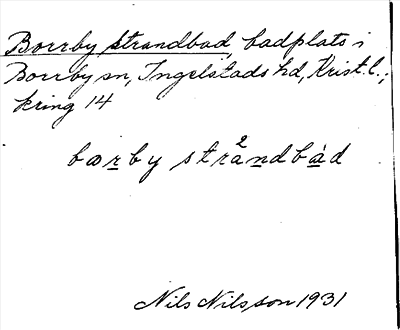 Borrby strandbad, badplats i
Borrby sn, Ingelstads hd, Krist. l.;
kring 14
børby stra²ndbàd
Nils Nilsson 1931